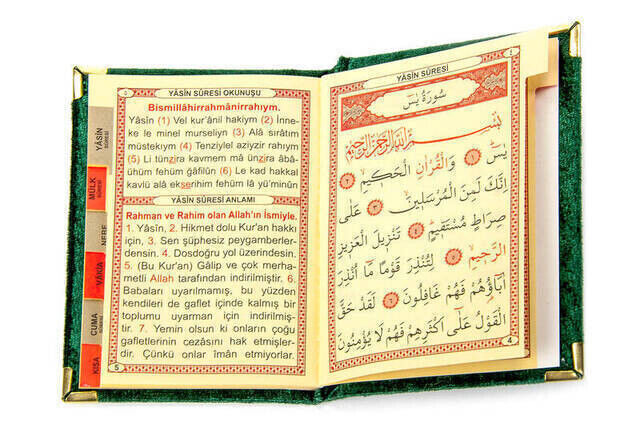 YÂSİN SÛRESİ OKUNUŞU
Bismillâhirrahmânirrahıym.
Yâsîn (1) Vel kur'ânil hakiym (2) İnne-
ke le minel murseliyn (3) Alâ sırâtim
müstekıym (4) Tenziylel aziyzir rahıym
(5) Li tünzira kavmem mâ ünzira âbâ-
ühüm fehüm ğâfilûn (6) Le kad hakkal
kavlü alâ ekserihim fehüm lâ yü'minûn
YÂSİN SÛRESİ ANLAMI
Rahman ve Rahim olan Allah'ın İsmiyle.
1. Yâsîn, 2. Hikmet dolu Kur'an hakkı
için, 3. Sen şüphesiz peygamberler-
densin. 4. Dosdoğru yol üzerindesin.
5. (Bu Kur'an) Gâlip ve çok merha-
metli Allah tarafından indirilmiştir. 6.
Babaları uyarılmamış, bu yüzden
kendileri de gaflet içinde kalmış bir
toplumu uyarman için indirilmiş-
tir. 7. Yemin olsun ki onların çoğu
gafletlerinin cezasını hak etmişler-
dir. Çünkü onlar îmân etmiyorlar.
5
YÂSİN
SÛRESİ
MÜLK
SÛRESİ
NEBE
VÂKIA
CUMA
KISA
YÂSİN SÛRESİ
سُورَةُ يٰسٓ
بِسْمِ اللّٰهِ الرَّحْمٰنِ الرَّحِيمِ
يٰسٓ ﴿١﴾ وَالْقُرْاٰنِ الْحَكِيمِ ﴿٢﴾
اِنَّكَ لَمِنَ الْمُرْسَلِينَ ﴿٣﴾ عَلٰى
صِرَاطٍ مُسْتَقِيمٍ ﴿٤﴾ تَنْزِيلَ الْعَزِيزِ
الرَّحِيمِ ﴿٥﴾ لِتُنْذِرَ قَوْمًا مَٓا اُنْذِرَ
اٰبَٓاؤُهُمْ فَهُمْ غَافِلُونَ ﴿٦﴾ لَقَدْ حَقَّ
الْقَوْلُ عَلٰٓى اَكْثَرِهِمْ فَهُمْ لَا يُؤْمِنُونَ
4